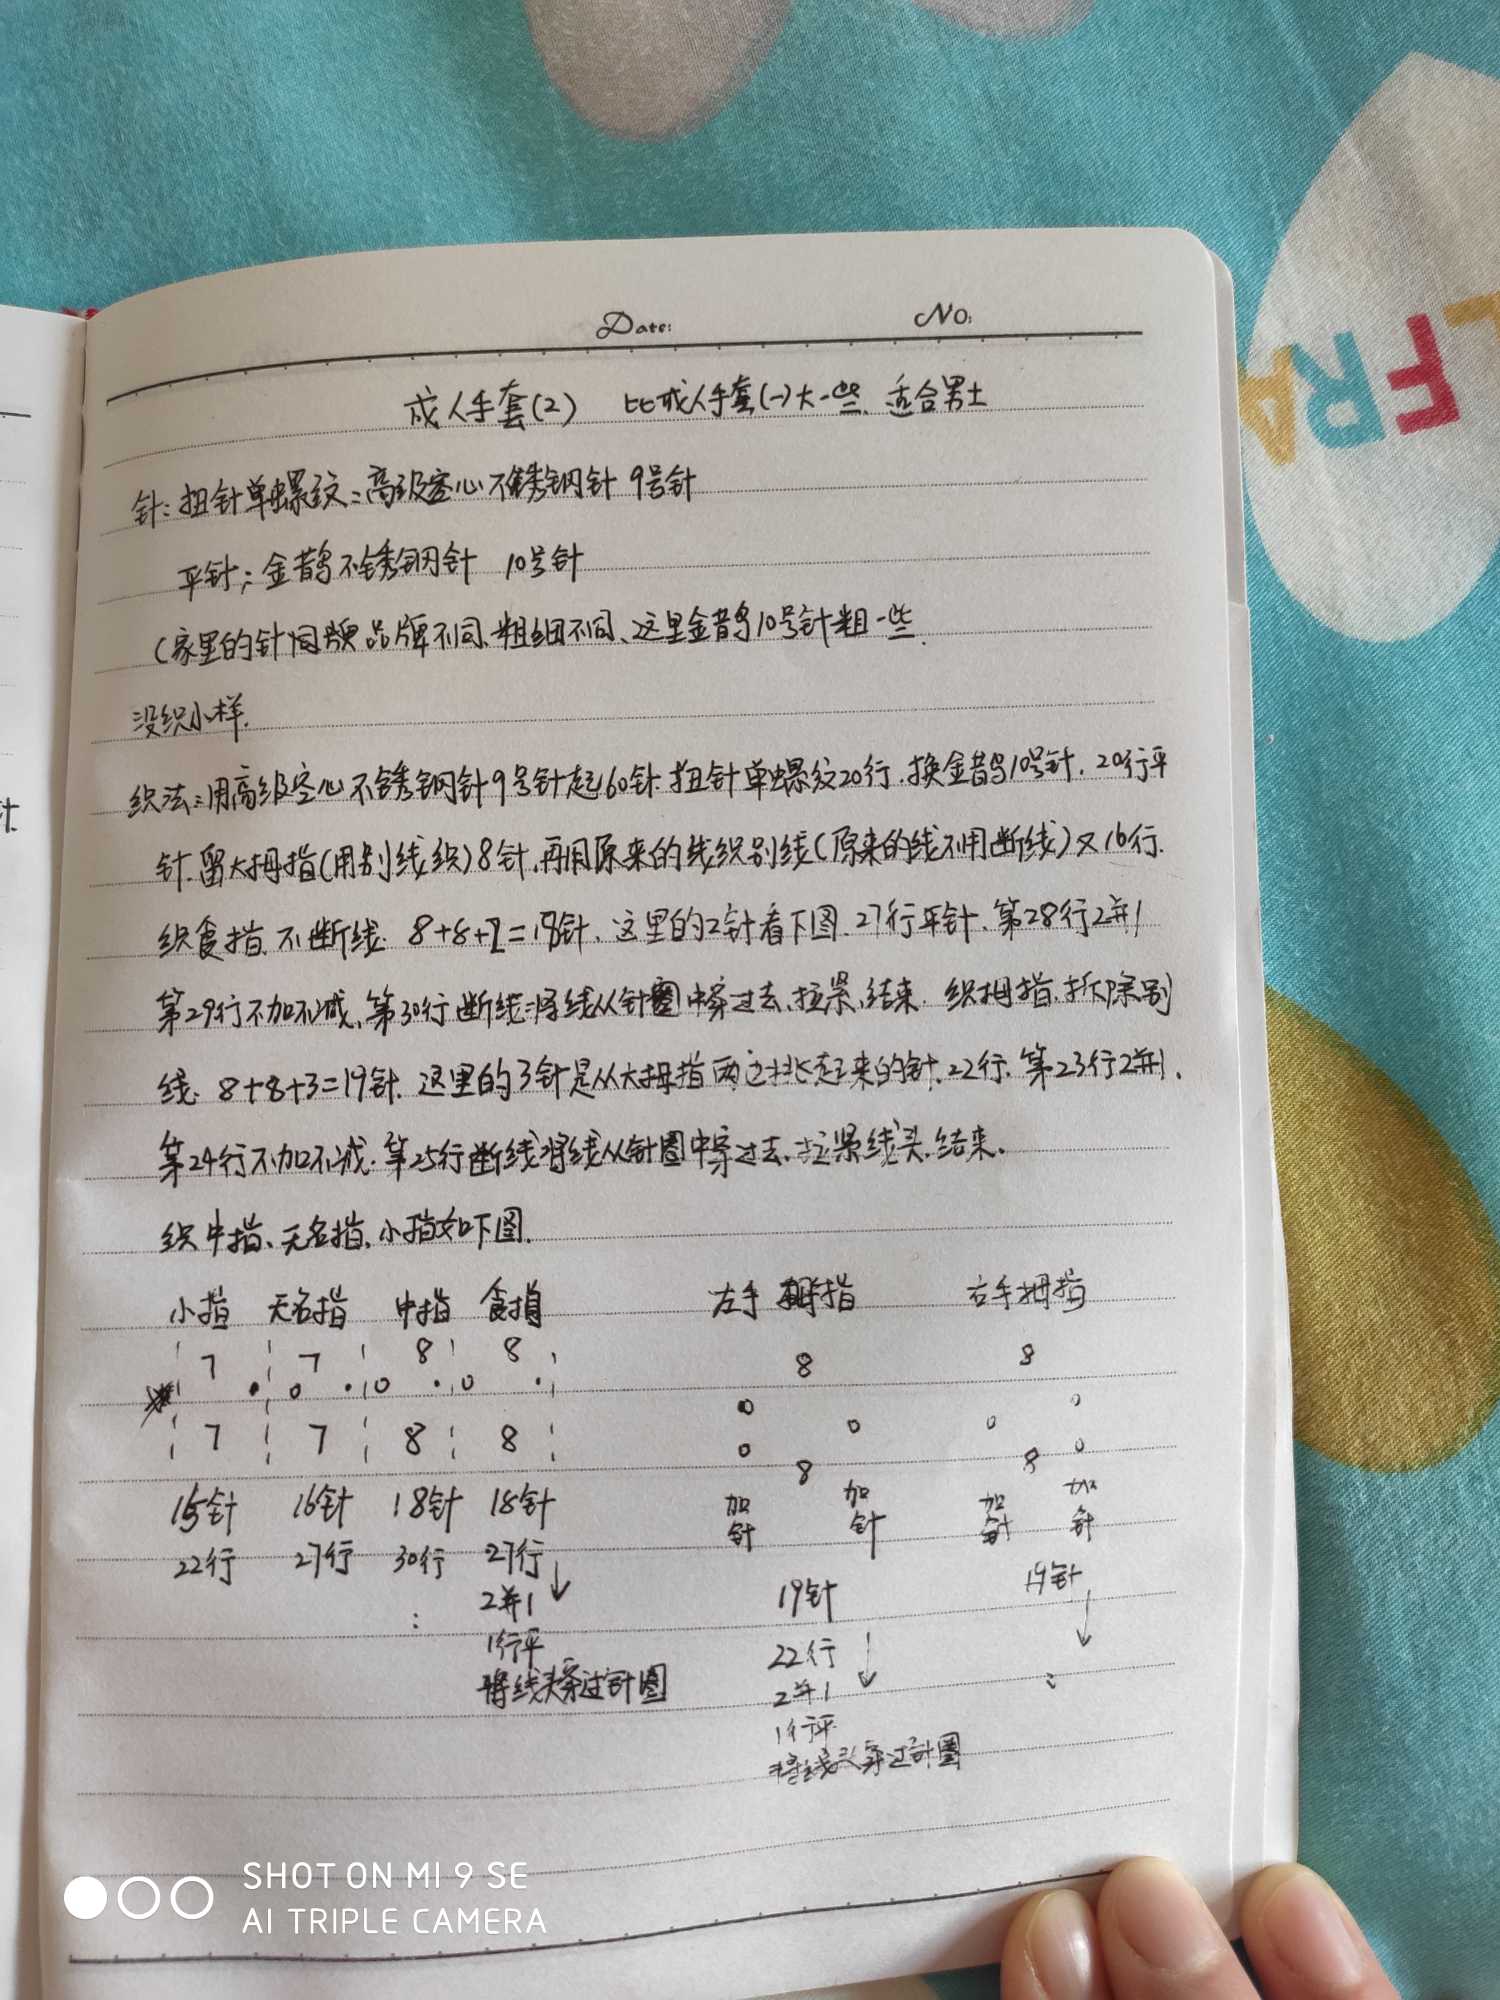 Date:
No:
成人手套(2) 比成人手套(一)大一些. 适合男士
针: 扭针单螺纹: 高级空心不锈钢针 9号针
平针: 金鹊不锈钢针 10号针
(家里的针 品牌不同、粗细不同、这里金鹊10号针粗一些.
没织小样.
织法: 用高级空心不锈钢针9号针起60针. 扭针单螺纹20行. 换金鹊10号针. 20行平
针. 留大拇指(用别线织)8针. 再用原来的线织别线(原来的线不用断线)又16行.
织食指. 不断线. 8+8+2=18针. 这里的2针看下图. 27行平针. 第28行2并1
第29行不加不减、第30行断线: 将线从针圈中穿过去, 拉紧, 结束. 织拇指. 拆除别
线. 8+8+3=19针. 这里的3针是从大拇指两边挑起来的针. 22行. 第23行2并1.
第24行不加不减. 第25行断线将线从针圈中穿过去、拉紧线头. 结束.
织中指、无名指、小指如下图.
小指 无名指 中指 食指 左手 拇指 右手拇指
7 7 8 8 8 8
7 7 8 8 8 8
加针 加针 加针 加针
15针 16针 18针 18针
22行 27行 30行 27行 ↓
2并1
1行平
将线头穿过针圈
19针 19针
22行 ↓ ↓
2并1
1行平
将线头穿过针圈
FRA
L
针.
SHOT ON MI 9 SE
AI TRIPLE CAMERA